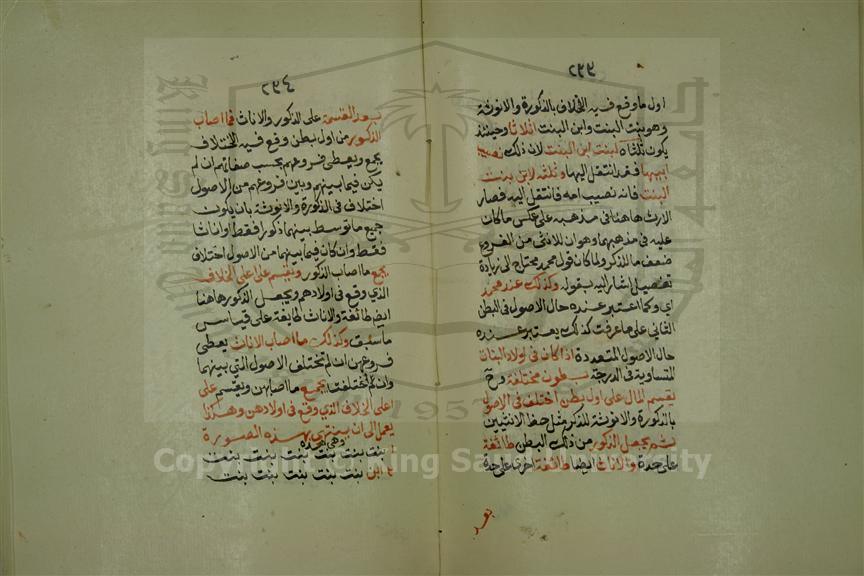 ٢٩٣
اول ما وقع فيه الخلاف بالذكورة والانوثة
وهو بنت البنت وابن البنت اثلاثا وحينئذ
يكون ثلثاه لبنت ابن البنت لان ذلك نصيب
ابيها فقد انتقل اليها وثلثه لابن بنت
البنت فانه نصيب امه فانتقل اليه فصار
الارث هاهنا في مذهبه على عكس ما كان
عليه في مذهبهما وهو ان للانثى من الفروع
ضعف ما للذكر ولما كان قول محمد محتاج الى زيادة
تفصيل اشار اليه بقوله وكذلك عند محمد
اي وكما اعتبر عنده حال الاصول في البطن
الثاني على ما عرفت كذلك يعتبر عنده
حال الاصول المتعددة اذا كان في اولاد البنات
المتساوية في الدرجة بطون مختلفة وح
يقسم المال على اول بطن اختلف في الاصول
بالذكورة والانوثة للذكر مثل حظ الانثيين
ثم يجعل الذكور من ذلك البطن طائفة
على حدة والاناث ايضا طائفة اخرى على حدة
بعد
٢٩٤
بعد القسمة على الذكور والاناث فما اصاب
الذكور من اول بطن وقع فيه الاختلاف
يجمع ويعطى فروعهم بحسب صفاتهم ان لم
يكن فيما بينهم وبين فروعهم من الاصول
اختلاف في الذكورة والانوثة بان يكون
جميع ما توسط بينهما ذكورا فقط او اناثا
فقط وان كان فيما بينهما من الاصول اختلاف
يجمع ما اصاب الذكور ويقسم على اعلى الخلاف
الذي وقع في اولادهم ويجعل الذكور هاهنا
ايضا طائفة والاناث طايفة على قياس
ما سبق وكذلك ما اصاب الاناث يعطى
فروعهن ان لم تختلف الاصول التي بينهما
وان اختلفت يجمع ما اصابهن ويقسم على
اعلى الخلاف الذي وقع في اولادهن وهكذا
يعمل الى ان ينتهي بهذه الصورة
وهي هذه
بنت بنت بنت بنت بنت بنت
ابن بنت بنت بنت بنت بنت
Copyright © King Saud University
1957